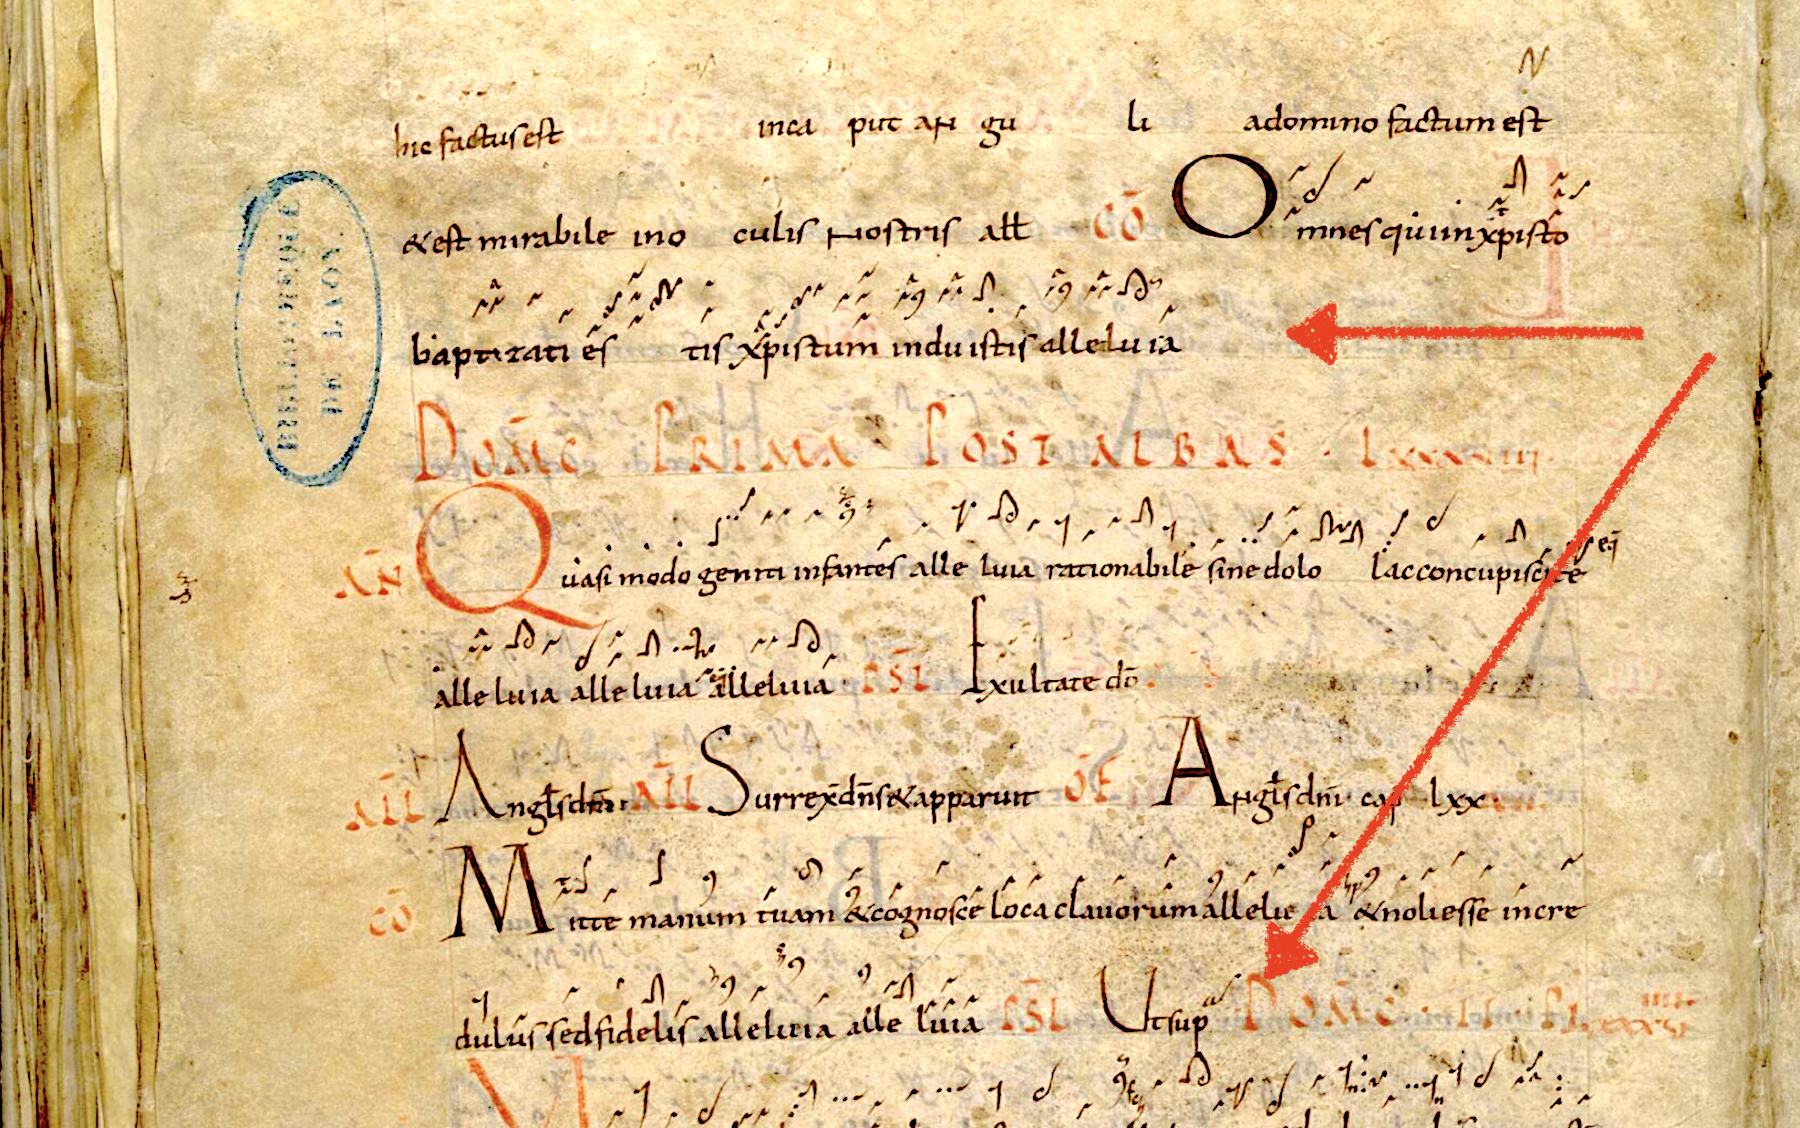 hic factus est in ca put an gu li a domino factum est
& est mirabile in o culis nostris all CŌ Omnes qui in xp̄isto
baptizati es tis xp̄istum induistis alleluia
DOMC PRIMA POST ALBAS LXXXXIII
AN Quasi modo geniti infantes alle luia rationabile sine dolo lac concupiscite eq̄
alleluia alleluia alleluia PSL Exultate dō
ALL Anglsdni ALL Surrex dn̄s & apparuit OF Angl̄s dn̄i cap lxx
CŌ Mitte manum tuam & cognosce loca clavorum allelu ia & noli esse incre
dulus sed fidelis alleluia alle luia PSL Ut sup DOMC II P
BIBLIOTHEQUE
DE LAON.